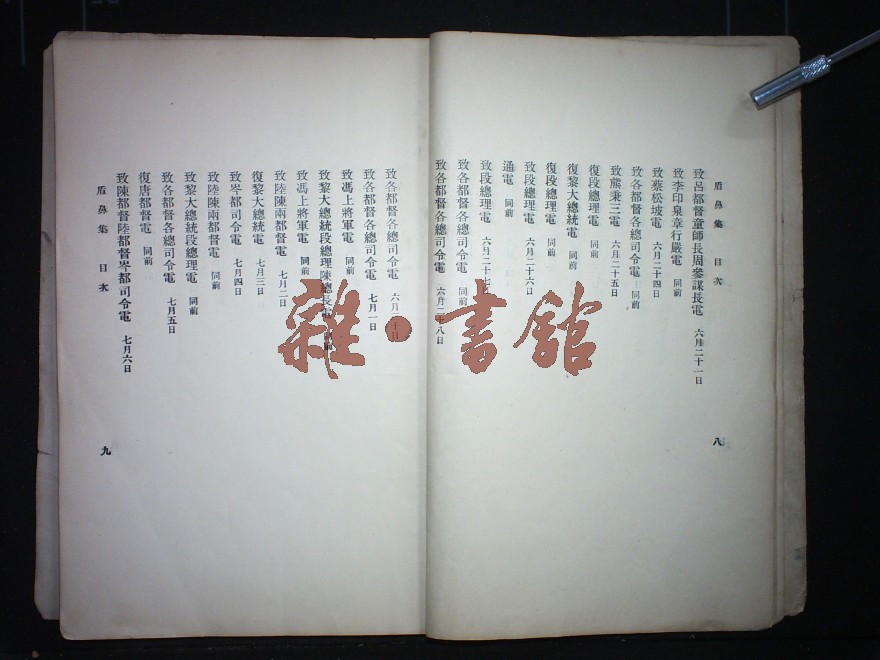 盾鼻集　目次
致呂都督童師長周參謀長電　六月二十一日
致李印泉章行嚴電　同前
致蔡松坡電　六月二十四日
致各都督各總司令電　同前
致熊秉三電　六月二十五日
復段總理電　同前
復黎大總統電　同前
復段總理電　同前
致段總理電　六月二十六日
通電　同前
致段總理電　六月二十
致各都督各總司令電　同前
致各都督各總司令電　六月二十八日
八
致各都督各總司令電　六月三十日
致各都督各總司令電　七月一日
致馮上將軍電　同前
致黎大總統段總理陳總長電　同前
致馮上將軍電　同前
致陸陳兩都督電　七月二日
復黎大總統電　七月三日
致岑都司令電　七月四日
致陸陳兩都督電　同前
致黎大總統段總理電　同前
致各都督各總司令電　七月五日
復唐都督電　同前
致陳都督陸都督岑都司令電　七月六日
盾鼻集　目次
九
雜·書館